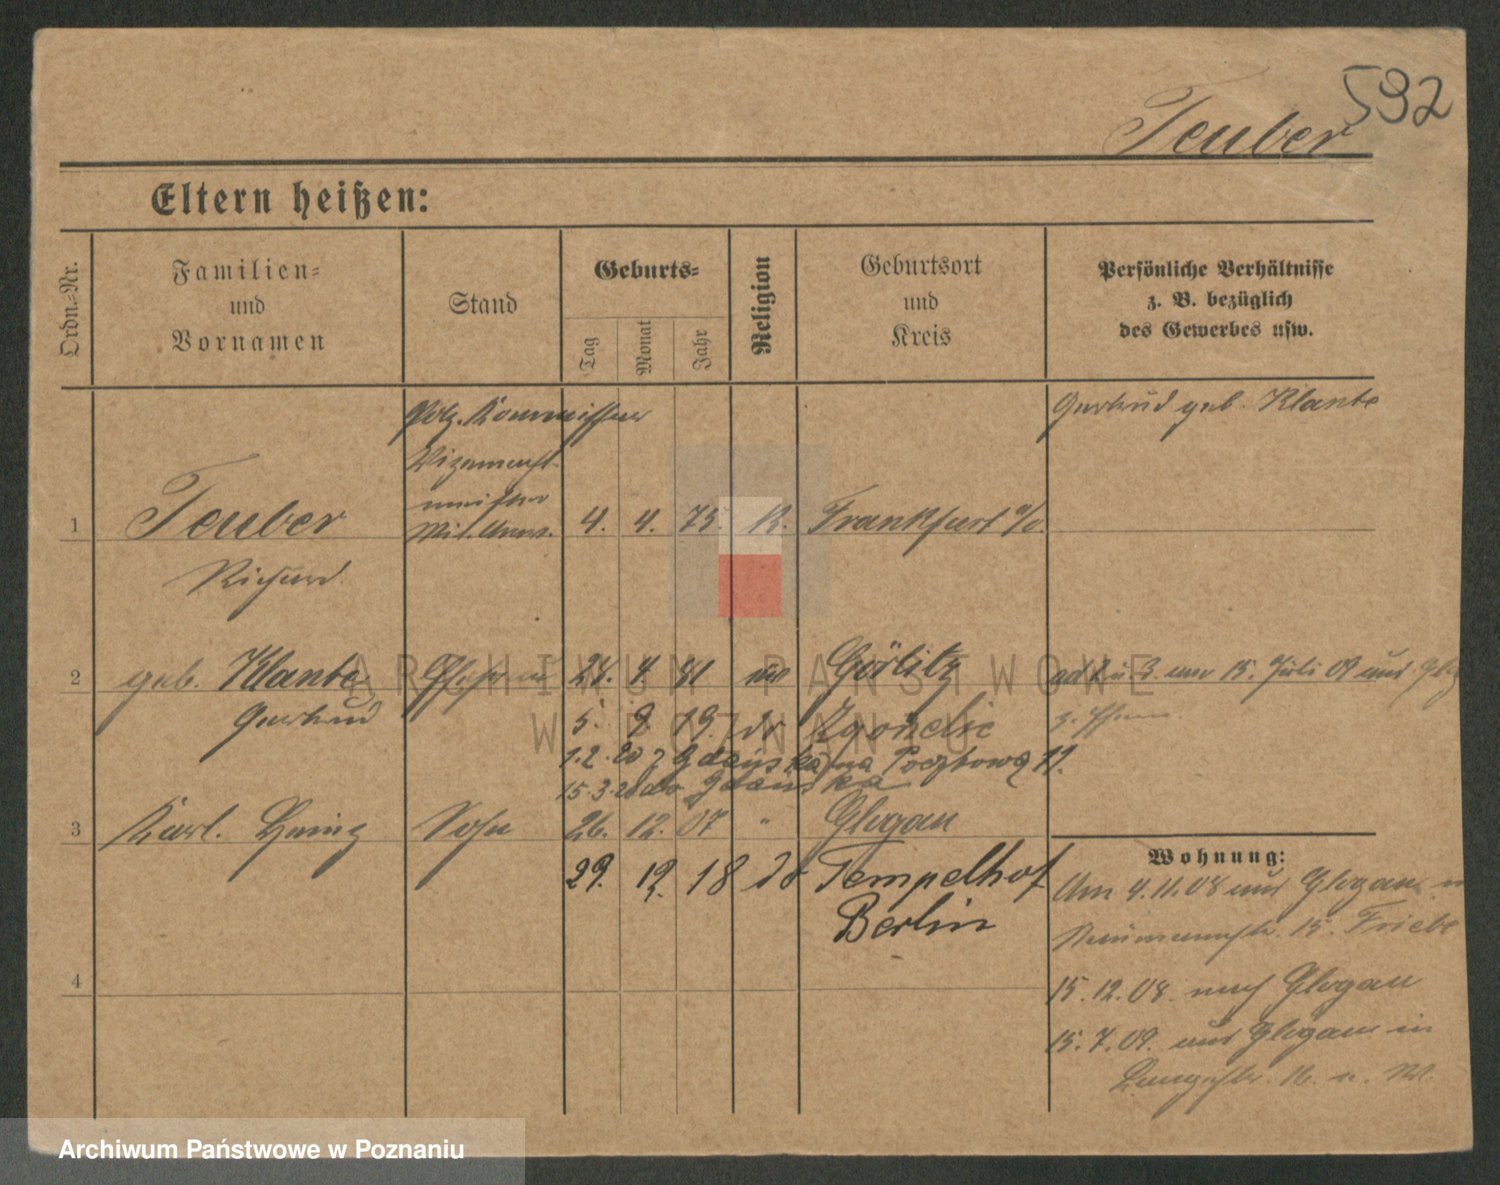 592
Teuber
Eltern heißen:
Ordn.-Nr.
Familien-
und
Vornamen
Stand
Geburts-
Tag
Monat
Jahr
Religion
Geburtsort
und
Kreis
Persönliche Verhältnisse
z. B. bezüglich
des Gewerbes usw.
Polz. Kommissar
Gertrud geb. Klante
Vizewacht-
meister
1 Teuber Mil. Anw. 4. 4. 75. K. Frankfurt a/O.
Richard
2 geb. Klante Ehefrau 28. 4. 81 Görlitz ad 2 u. 3. am 15. Juli 09 aus
Gertrud 5. 9. 19. do Zgorzelic
1.2.20 z Gdańska na Pocztową 11.
15.3.20 do Gdańska
3 Karl. Heinz Sohn 26. 12. 07 " Glogau
29. 12. 18 do Tempelhof
Berlin
4
Wohnung:
Am 4.11.08 aus Glogau
Naumannstr. 15. Friebe
15.12.08. nach Glogau
15.7.09. aus Glogau in
Archiwum Państwowe w Poznaniu
ARCHIWUM PAŃSTWOWE
W POZNANIU